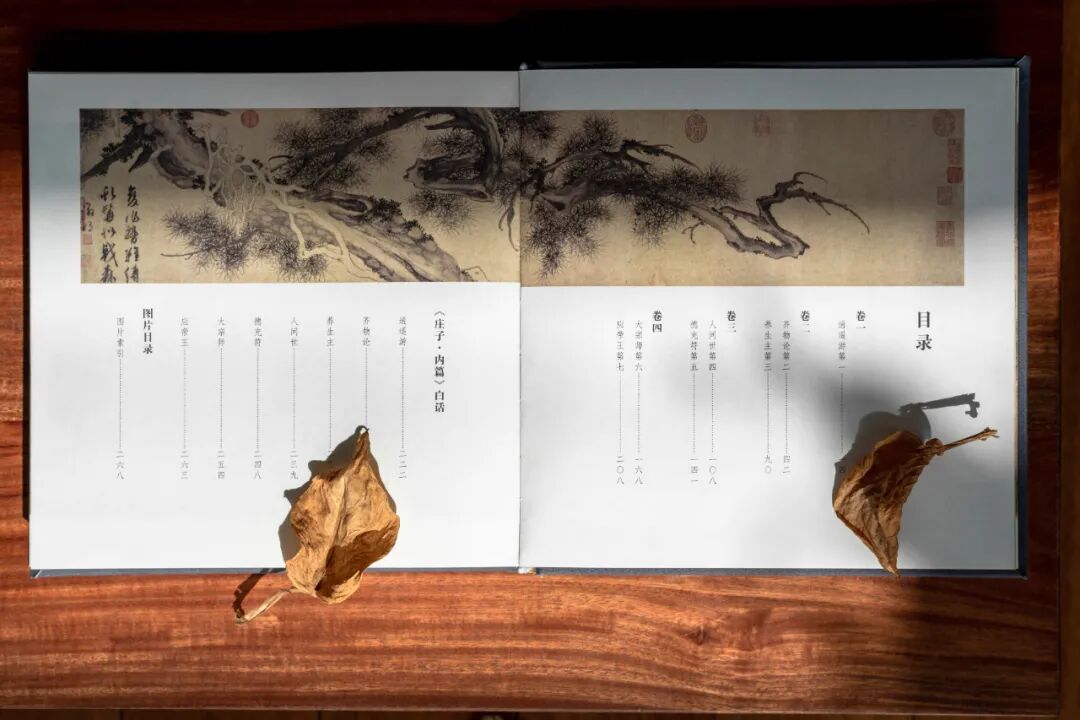 目录
卷一
逍遥游第一……四
卷二
齐物论第二……四二
养生主第三……九〇
卷三
人间世第四……一〇八
德充符第五……一四一
卷四
大宗师第六……一六八
应帝王第七……二〇八
《庄子·内篇》白话
逍遥游……二二二
齐物论……
养生主……
人间世……二三九
德充符……二四八
大宗师……二五四
应帝王……二六三
图片目录
图片索引……二六八